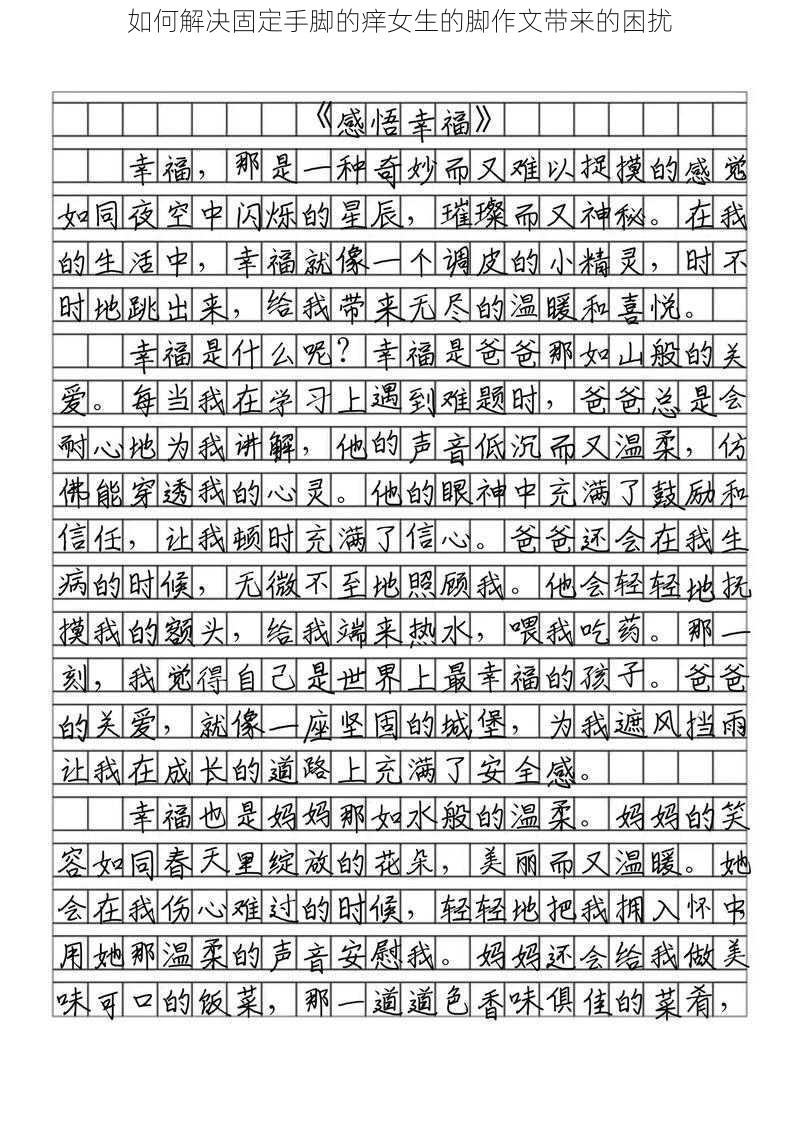 如何解决固定手脚的痒女生的脚作文带来的困扰
《感悟幸福》
幸福，那是一种奇妙而又难以捉摸的感觉
如同夜空中闪烁的星辰，璀璨而又神秘。在我
的生活中，幸福就像一个调皮的小精灵，时不
时地跳出来，给我带来无尽的温暖和喜悦。
幸福是什么呢？幸福是爸爸那如山般的关
爱。每当我在学习上遇到难题时，爸爸总是会
耐心地为我讲解，他的声音低沉而又温柔，仿
佛能穿透我的心灵。他的眼神中充满了鼓励和
信任，让我顿时充满了信心。爸爸还会在我生
病的时候，无微不至地照顾我。他会轻轻地抚
摸我的额头，给我端来热水，喂我吃药。那一
刻，我觉得自己是世界上最幸福的孩子。爸爸
的关爱，就像一座坚固的城堡，为我遮风挡雨
让我在成长的道路上充满了安全感。
幸福也是妈妈那如水般的温柔。妈妈的笑
容如同春天里绽放的花朵，美丽而又温暖。她
会在我伤心难过的时候，轻轻地把我拥入怀中
用她那温柔的声音安慰我。妈妈还会给我做美
味可口的饭菜，那一道道色香味俱佳的菜肴，